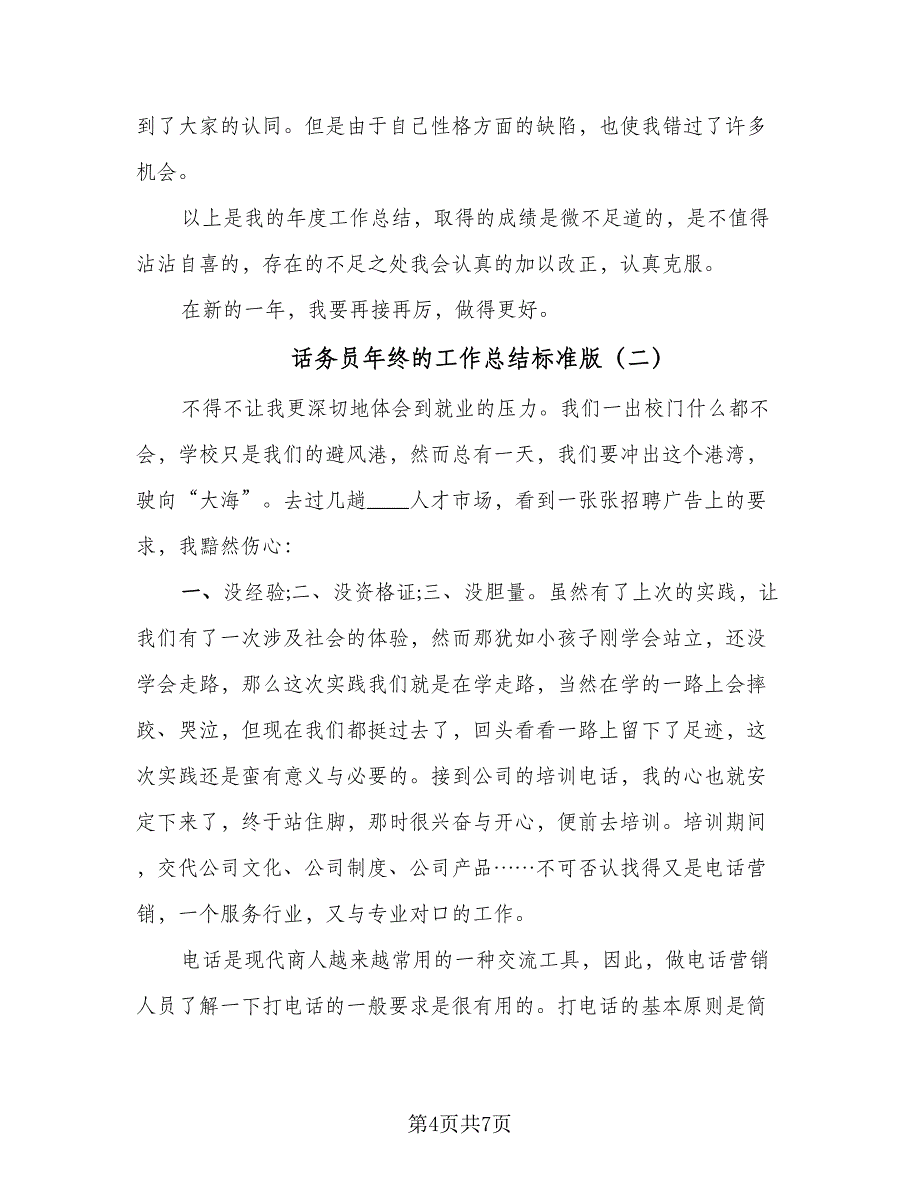 到了大家的认同。但是由于自己性格方面的缺陷，也使我错过了许多
机会。
以上是我的年度工作总结，取得的成绩是微不足道的，是不值得
沾沾自喜的，存在的不足之处我会认真的加以改正，认真克服。
在新的一年，我要再接再厉，做得更好。
话务员年终的工作总结标准版（二）
不得不让我更深切地体会到就业的压力。我们一出校门什么都不
会，学校只是我们的避风港，然而总有一天，我们要冲出这个港湾，
驶向“大海”。去过几趟____人才市场，看到一张张招聘广告上的要
求，我黯然伤心：
一、没经验;二、没资格证;三、没胆量。虽然有了上次的实践，让
我们有了一次涉及社会的体验，然而那犹如小孩子刚学会站立，还没
学会走路，那么这次实践我们就是在学走路，当然在学的一路上会摔
跤、哭泣，但现在我们都挺过去了，回头看看一路上留下了足迹，这
次实践还是蛮有意义与必要的。接到公司的培训电话，我的心也就安
定下来了，终于站住脚，那时很兴奋与开心，便前去培训。培训期间
，交代公司文化、公司制度、公司产品……不可否认找得又是电话营
销，一个服务行业，又与专业对口的工作。
电话是现代商人越来越常用的一种交流工具，因此，做电话营销
人员了解一下打电话的一般要求是很有用的。打电话的基本原则是简
第4页共7页